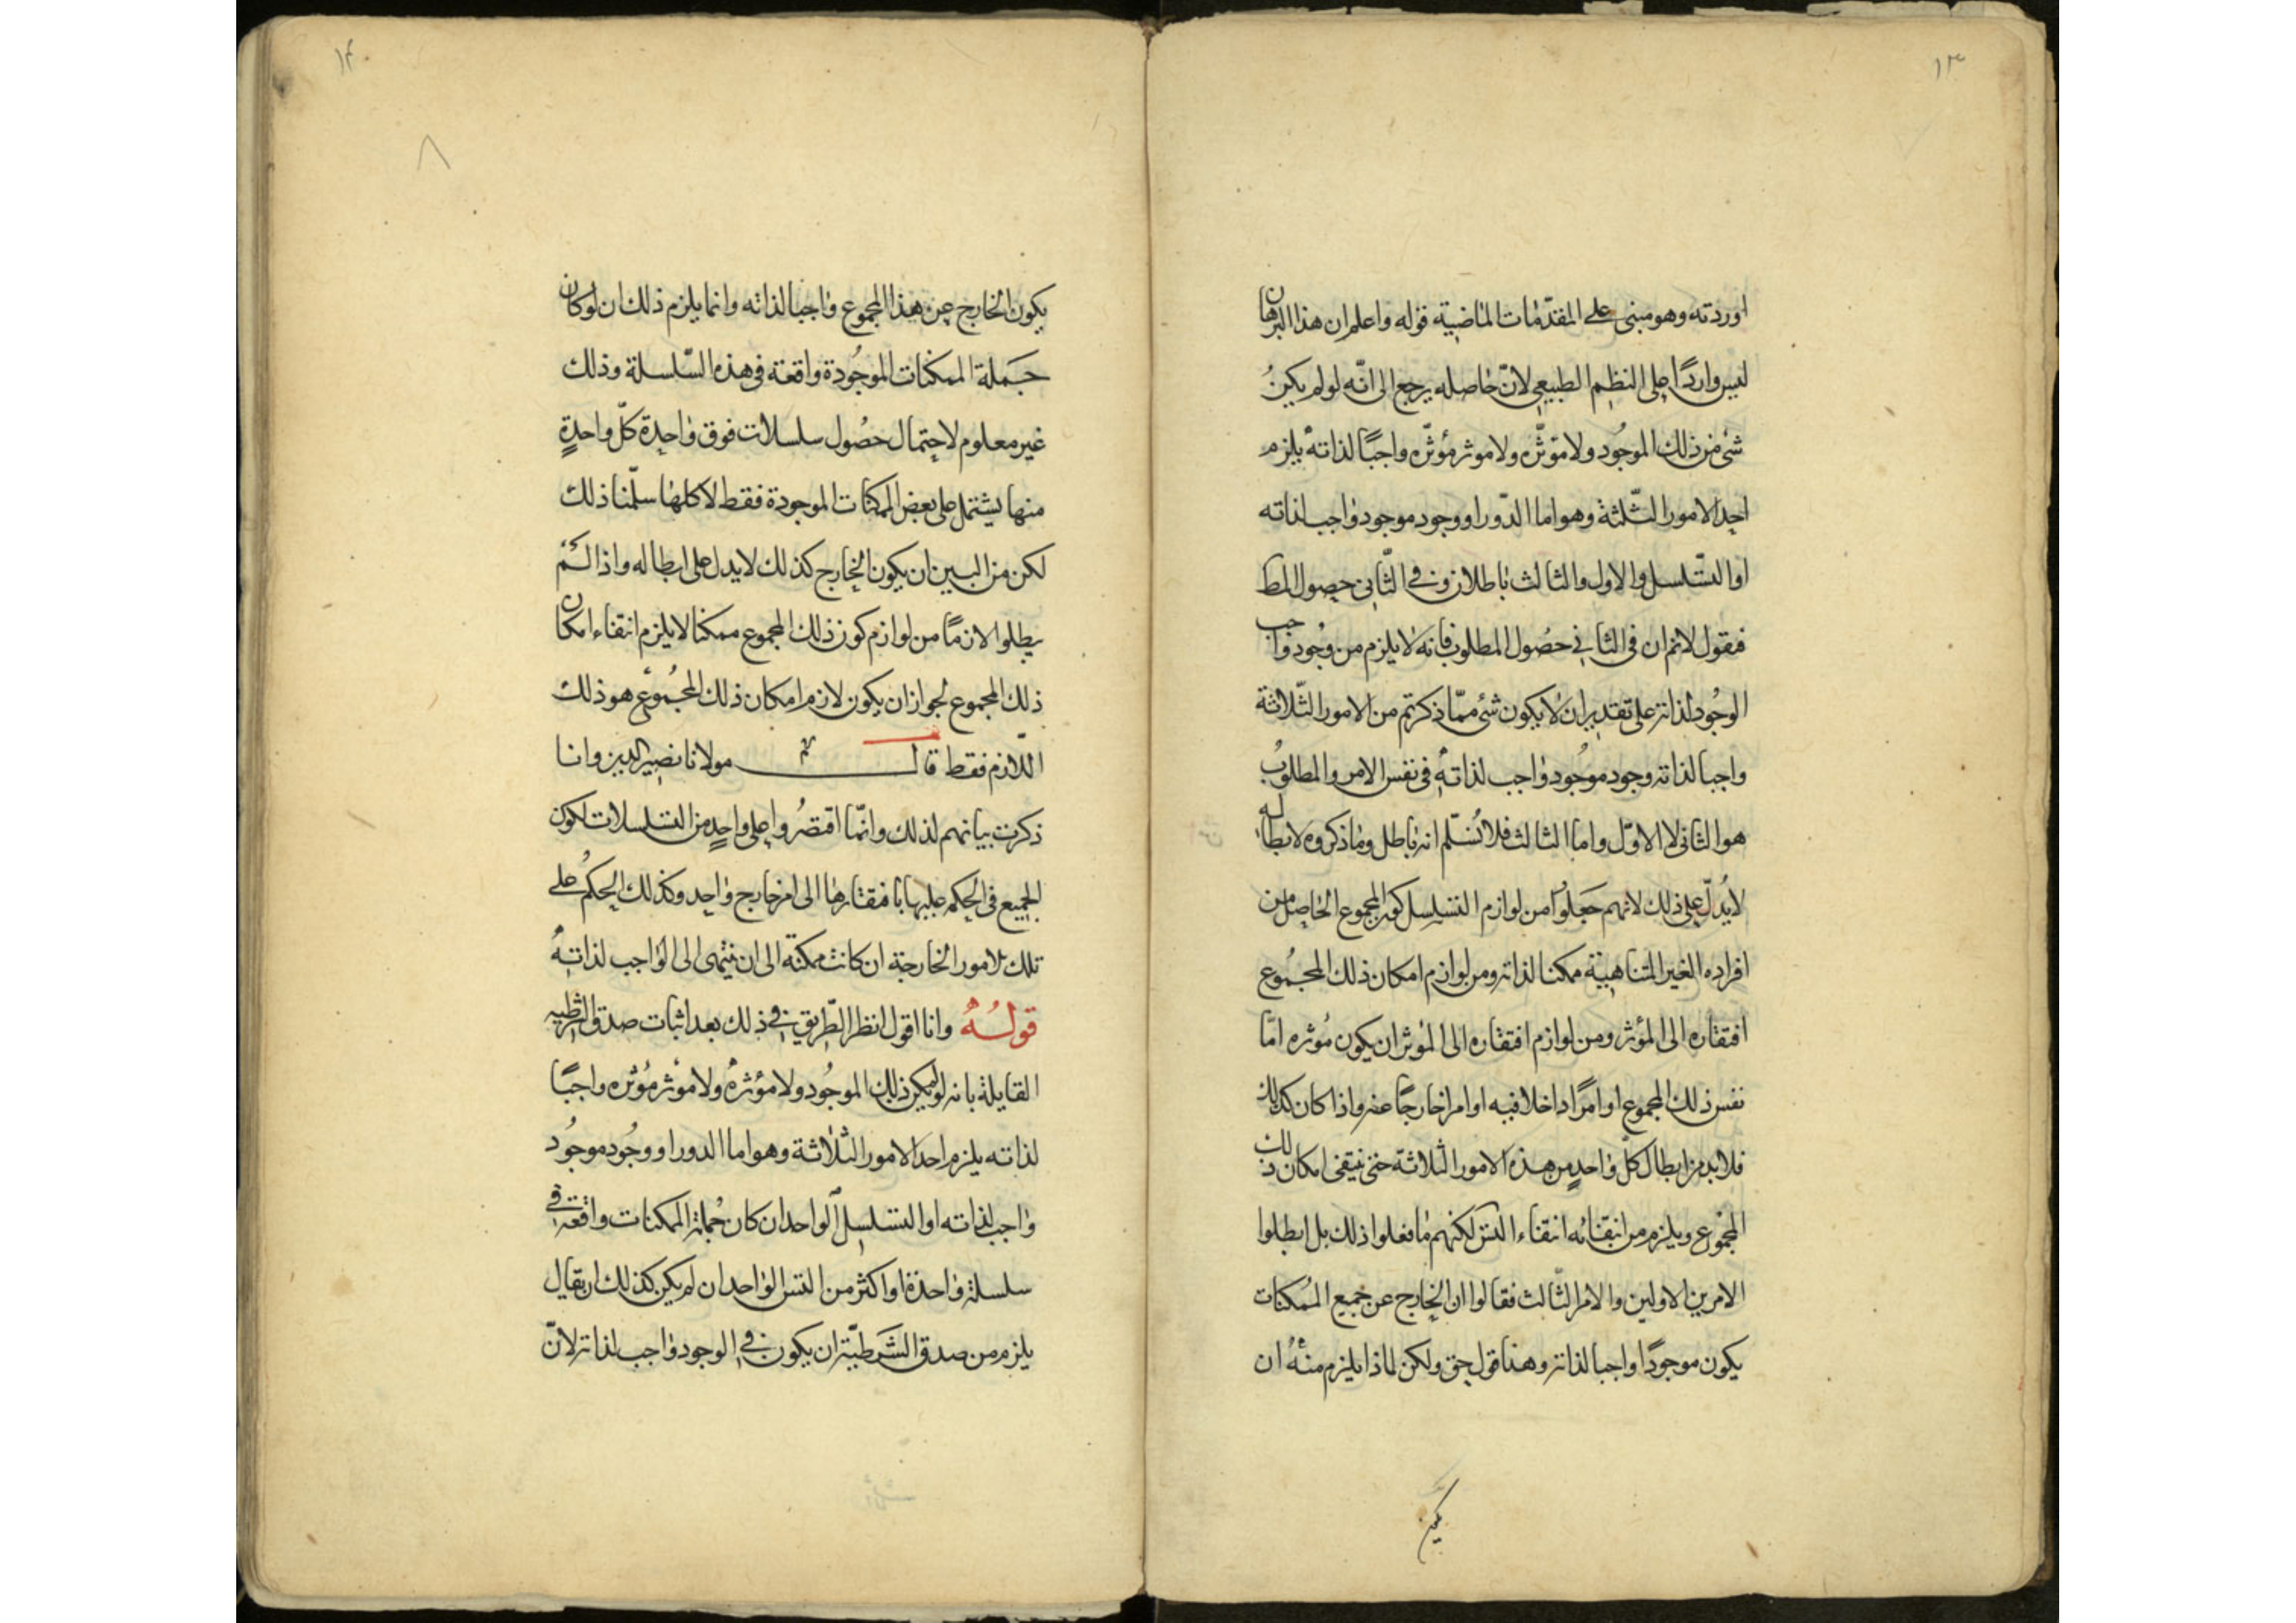 ١٣
اوردته وهو مبنى على المقدّمات الماضية قوله واعلم ان هذا البرهان
ليس واردًا على النظم الطبيعى لانّ حاصله يرجع الى انّه لو لم يكنُ
شئ من ذلك الموجُود ولا مؤثّره ولا موثر مؤثّره واجبًا لذاته يلزم
احد الامور الثّلثة وهو اما الدّور او وجود موجود واجب لذاته
او التّسلسل والاول والثالث باطلان وفى الثّانى حصول المط
فنقول لانم ان فى الثانى حصُول المطلوب فانه لا يلزم من وجُود واجب
الوجُود لذاته على تقدير ان لا يكون شئ ممّا ذكرتم من الامور الثّلاثة
واجبا لذاته وجود موجُود واجب لذاته فى نفس الامر والمطلوبُ
هو الثانى لا الاوّل واما الثالث فلا نُسَلّم انه باطل وما ذكروه لابطاله
لا يُدلّ على ذلك لانهم جَعَلوُا من لوازم التسلسل كون المجموع الحاصل من
افراده الغير المتناهية ممكنا لذاته ومن لوازم امكان ذلك المجمُوع
افتقاره الى المؤثر ومن لوازم افتقاره الى المؤثر ان يكون مُوثره امّا
نفس ذلك المجموع او امرًا داخلا فيه او امرا خارجًا عنه واذا كان كذلك
فلابد من ابطال كلّ واحدٍ من هذه الامور الثّلاثة حتى ينتفى امكان ذلك
المجمُوع ويلزم من انتفائه انتفاء التس لكنهم ما فعلوا ذلك بل ابطلوا
الامرين الاولين والامر الثّالث فقالوا ان الخارج عن جميع المُمكنات
يكون موجودًا واجبا لذاته وهذا قول حق ولكن لماذا يلزم منهُ ان
١٤
٨
يكون الخارج عن هذا المجموع واجبا لذاته وانما يلزم ذلك ان لو كان
جَملة الممكنات الموجُودة واقعة فى هذه السّلسلة وذلك
غير معلوم لاحتمال حصُول سلسلات فوق واحدة كلّ واحدةٍ
منها يشتمل على بعض الممكنات الموجودة فقط لا كلها سلّمنا ذلك
لكن من البين ان يكون الخارج كذلك لا يدل على ابطاله واذا لم
يبطلوا لازمًا من لوازم كون ذلك المجموع ممكنا لا يلزم انتفاء امكان
ذلك المجموع لجواز ان يكون لازم امكان ذلك المجمُوع هو ذلك
اللّازم فقط قال مولانا نصير الدين وانا
ذكرت بيانهم لذلك وانّما اقتصرُوا على واحدٍ من التسلسلات لكون
الجميع فى الحكم عليها بافتقارها الى امر خارج واحد وكذلك الحكمُ على
تلك الامور الخارجة ان كانت ممكنة الى ان ينتهى الى الواجب لذاته
قولُهُ وانا اقول انظر الطّريق فى ذلك بعد اثبات صدق الشرطيه
القايلة بانه لو لم يكن ذلك الموجُود ولا مؤثرهُ ولا مؤثر مُؤثره واجبًا
لذاته يلزم احد الامور الثلاثة وهو اما الدور او وجُود موجُود
واجب لذاته او التسلسل الواحد ان كان جُملة الممكنات واقعة فى
سلسلة واحدة او اكثر من التس الواحد ان لم يكن كذلك ان يقال
يلزم من صدق الشَرطيّة ان يكون فى الوجود واجب لذاته لانّ